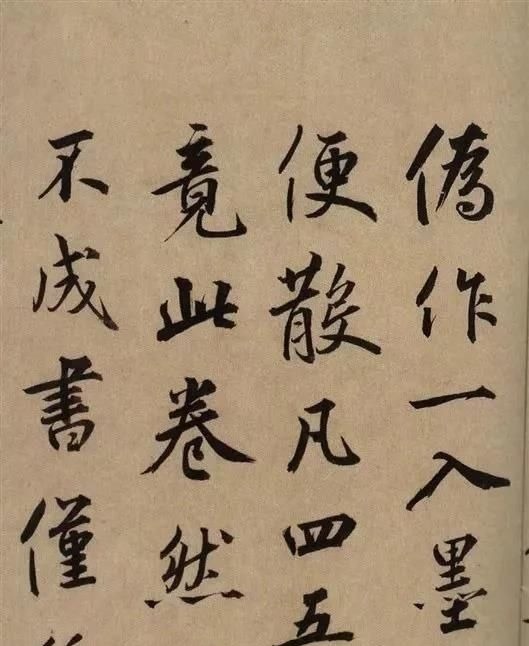 偽作一入墨
便散凡四五
竟此卷然
不成書僅